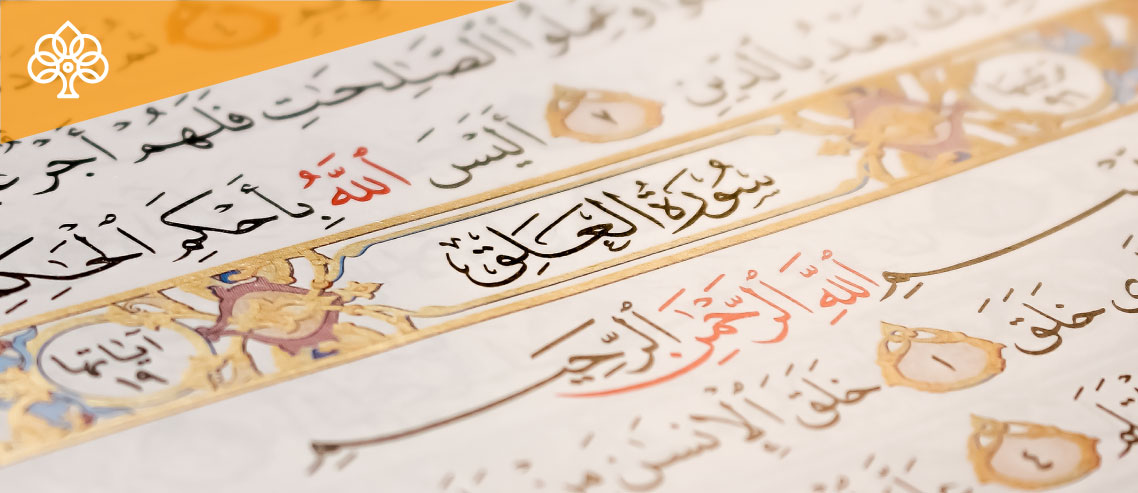 وَعَمِلُوا۟ ٱلصَّـٰلِحَـٰتِ فَلَهُمْ أَجْرٌ
بَعْدُ بِٱلدِّينِ ٧ أَلَيْسَ ٱللَّهُ بِأَحْكَمِ
ترتيبها ٩٦ سُورَةُ الْعَلَقِ آيَاتُهَا ١٩
ٱللَّهِ ٱلرَّحْمَـٰنِ ٱلرَّحِيمِ
خَلَقَ ١ خَلَقَ ٱلْإِنسَـٰنَ مِنْ
٤